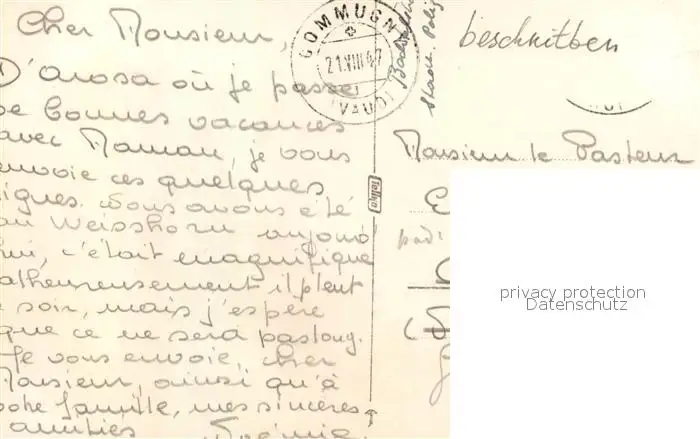 Cher Monsieur,
D'arosa où je passe
de bonnes vacances
avec Maman, je vous
envoie ces quelques
lignes. Nous avons été
au Weisshorn aujourd
hui, c'était magnifique
malheureusement il pleut
ce soir, mais j'espère
que ce ne sera pas long.
Je vous envoie, cher
Monsieur, ainsi qu'à
votre famille, mes sincères
amitiés
COMMUGNY
21.VIII.47
(VAUD)
beschnitten
Monsieur le Pasteur
privacy protection
Datenschutz